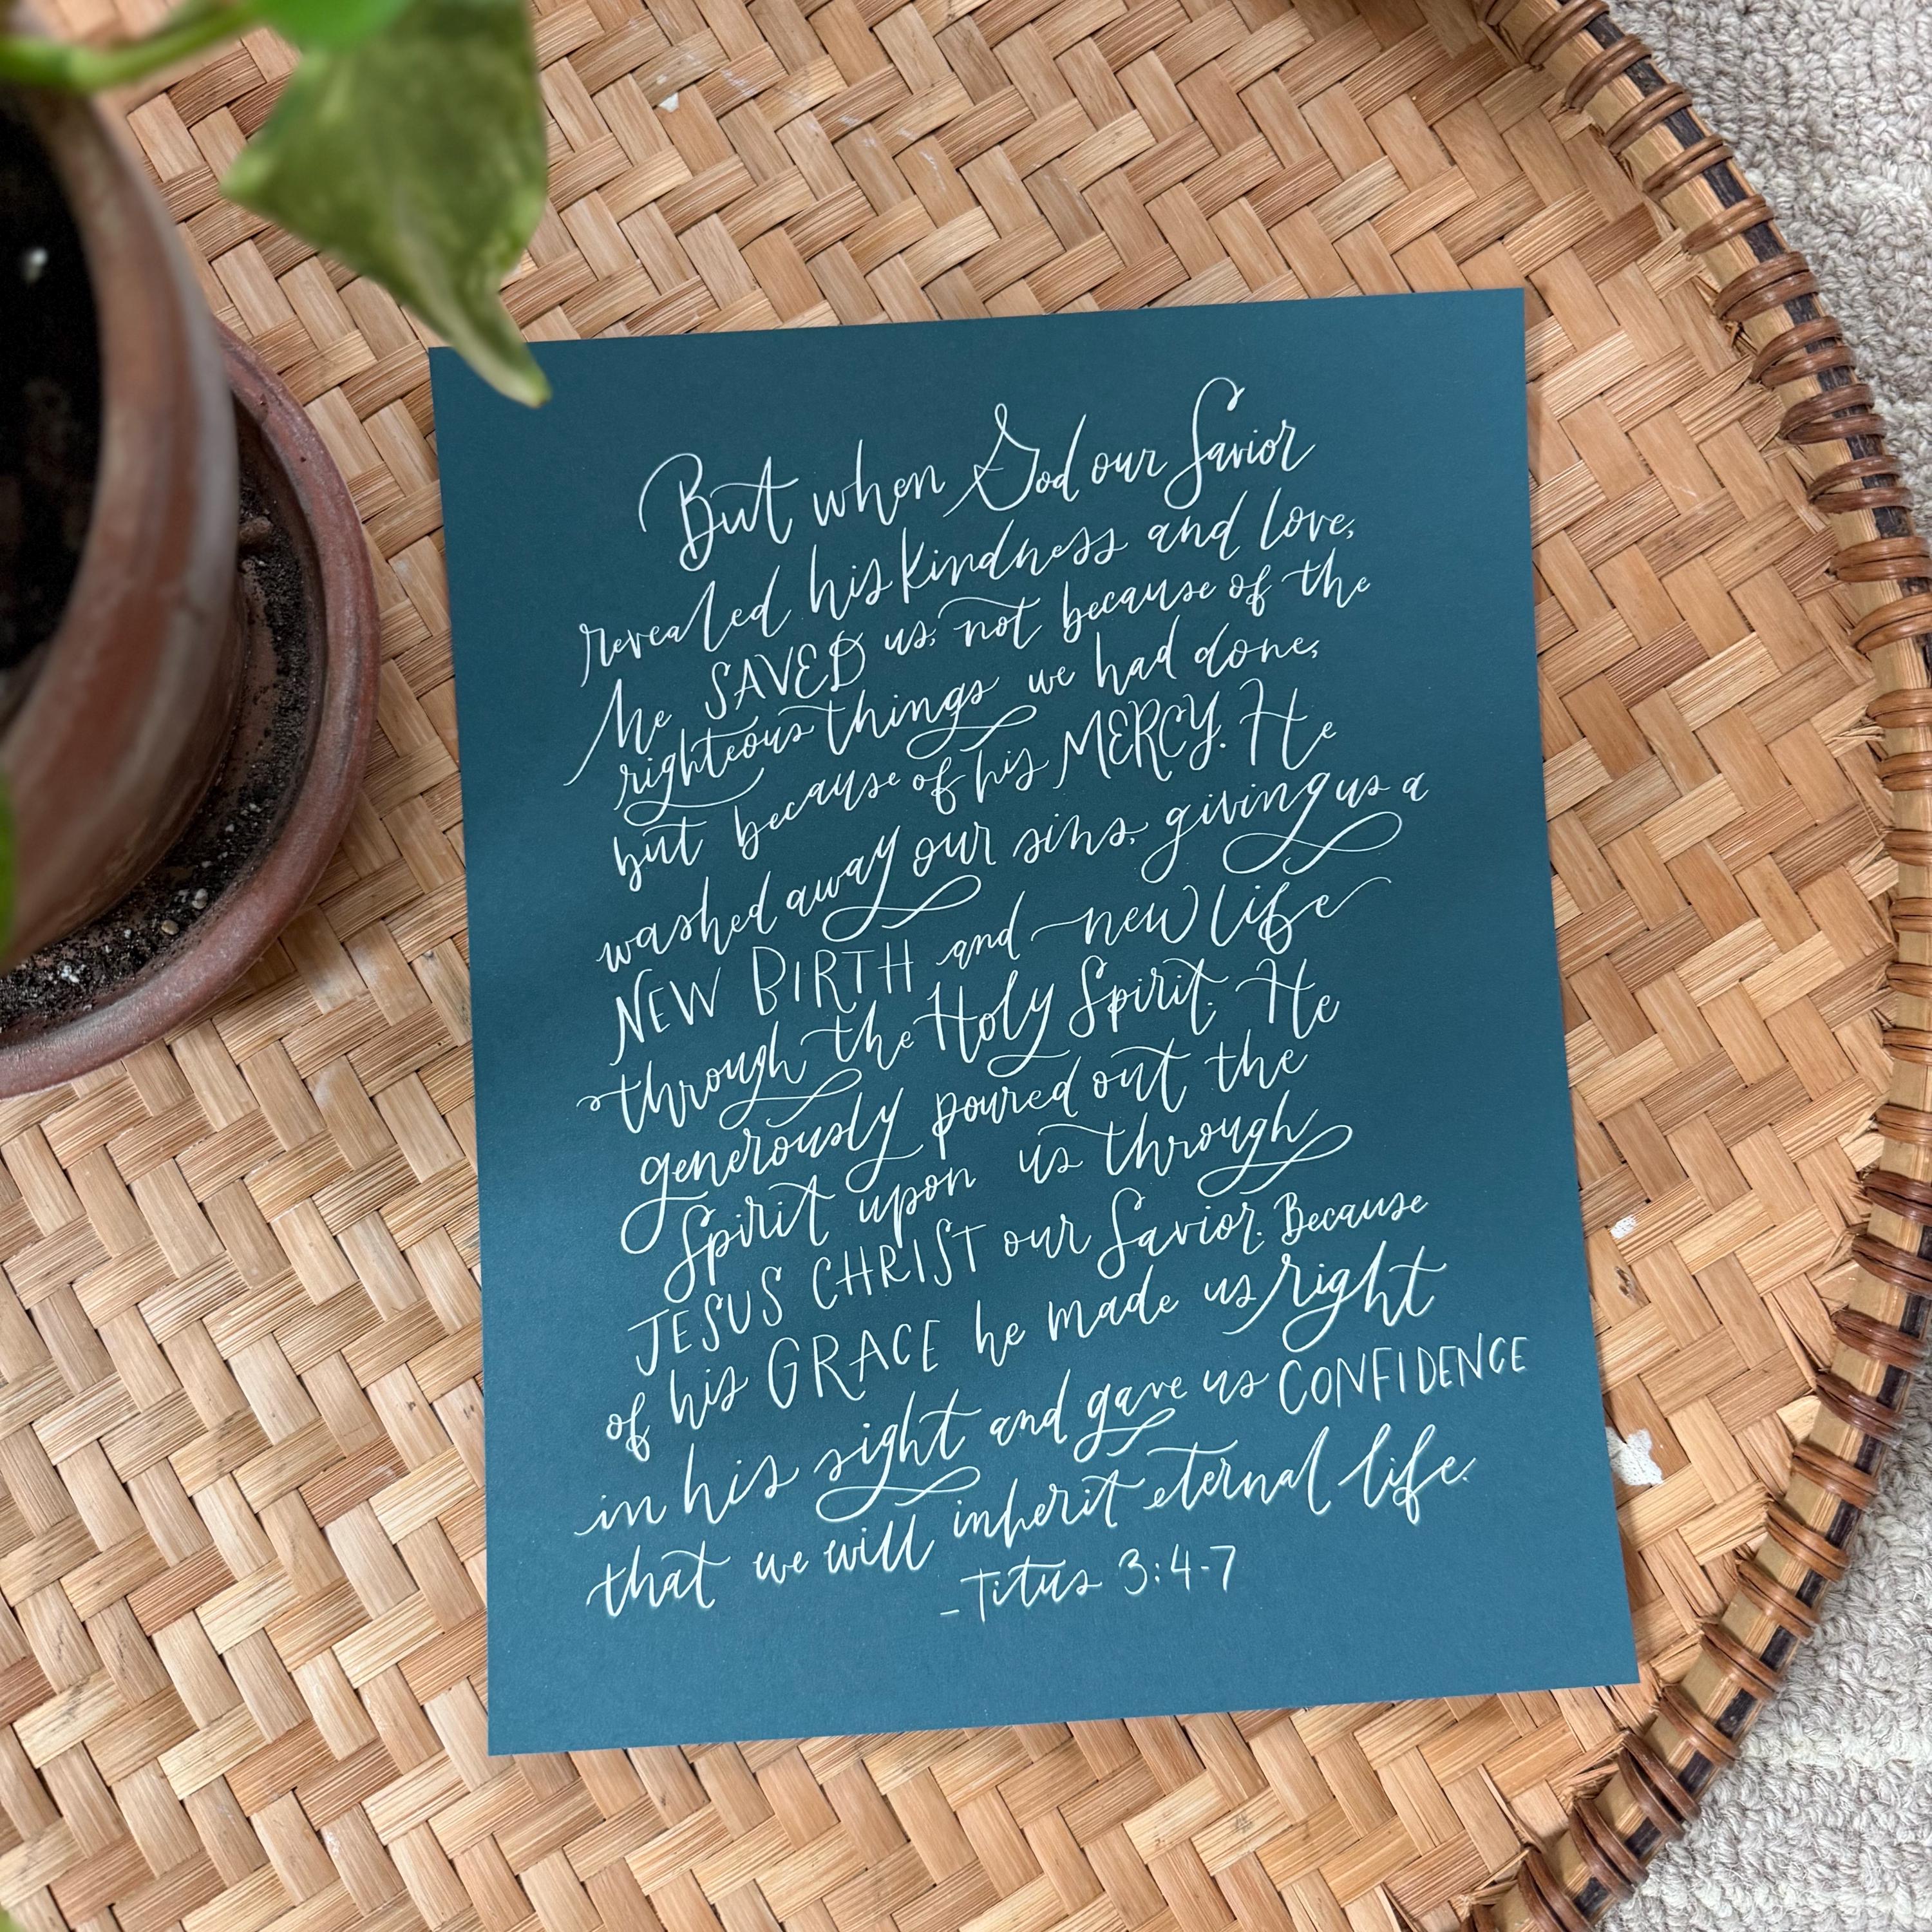 But when God our Savior
revealed his kindness and love,
He SAVED us, not because of the
righteous things we had done,
but because of his MERCY. He
washed away our sins, giving us a
NEW BIRTH and new life
through the Holy Spirit. He
generously poured out the
Spirit upon us through
JESUS CHRIST our Savior. Because
of his GRACE he made us right
in his sight and gave us CONFIDENCE
that we will inherit eternal life.
-Titus 3:4-7